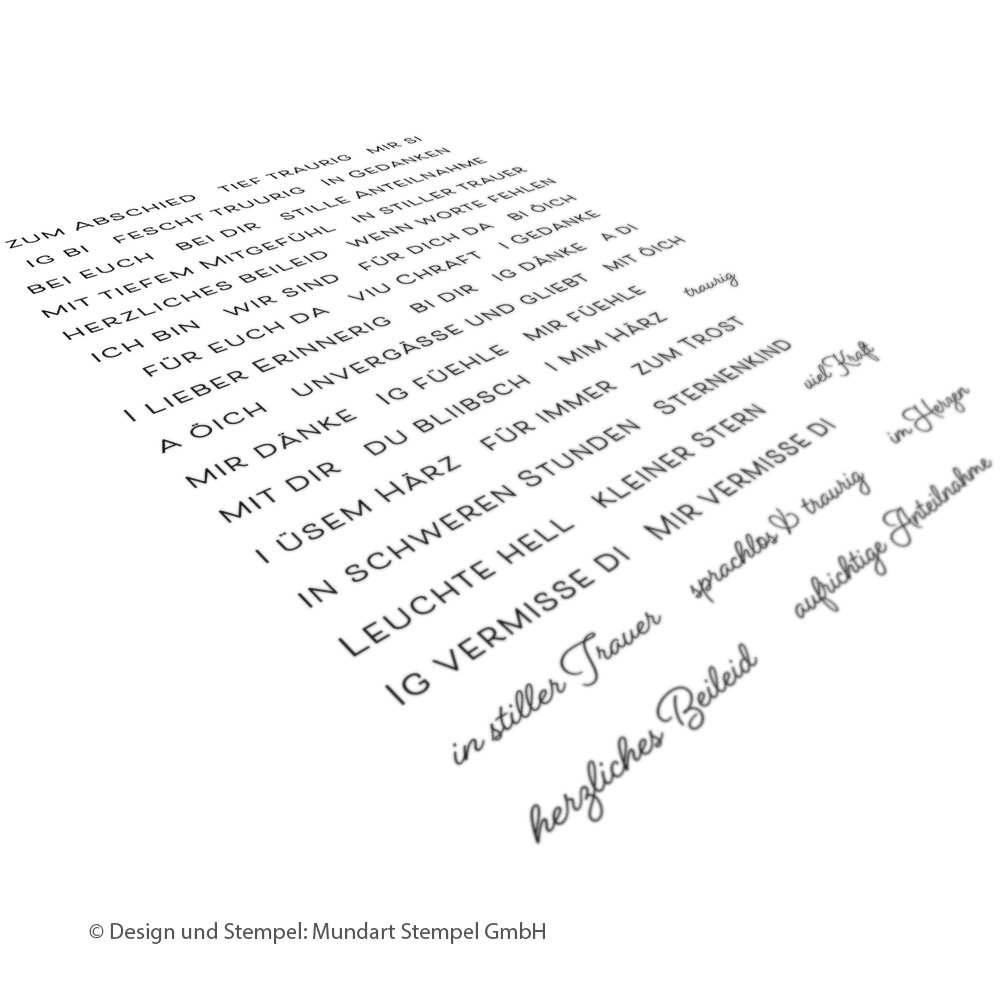 ZUM ABSCHIED TIEF TRAURIG MIR SI
IG BI FESCHT TRUURIG IN GEDANKEN
BEI EUCH BEI DIR STILLE ANTEILNAHME
MIT TIEFEM MITGEFÜHL IN STILLER TRAUER
HERZLICHES BEILEID WENN WORTE FEHLEN
ICH BIN WIR SIND FÜR DICH DA BI ÖICH
FÜR EUCH DA VIU CHRAFT I GEDANKE
I LIEBER ERINNERIG BI DIR IG DÄNKE A DI
A ÖICH UNVERGÄSSE UND GLIEBT MIT ÖICH
MIR DÄNKE IG FÜEHLE MIR FÜEHLE traurig
MIT DIR DU BLIIBSCH I MIM HÄRZ
I ÜSEM HÄRZ FÜR IMMER ZUM TROST
IN SCHWEREN STUNDEN STERNENKIND viel Kraft
LEUCHTE HELL KLEINER STERN
IG VERMISSE DI MIR VERMISSE DI im Herzen
in stiller Trauer sprachlos & traurig
herzliches Beileid aufrichtige Anteilnahme
© Design und Stempel: Mundart Stempel GmbH